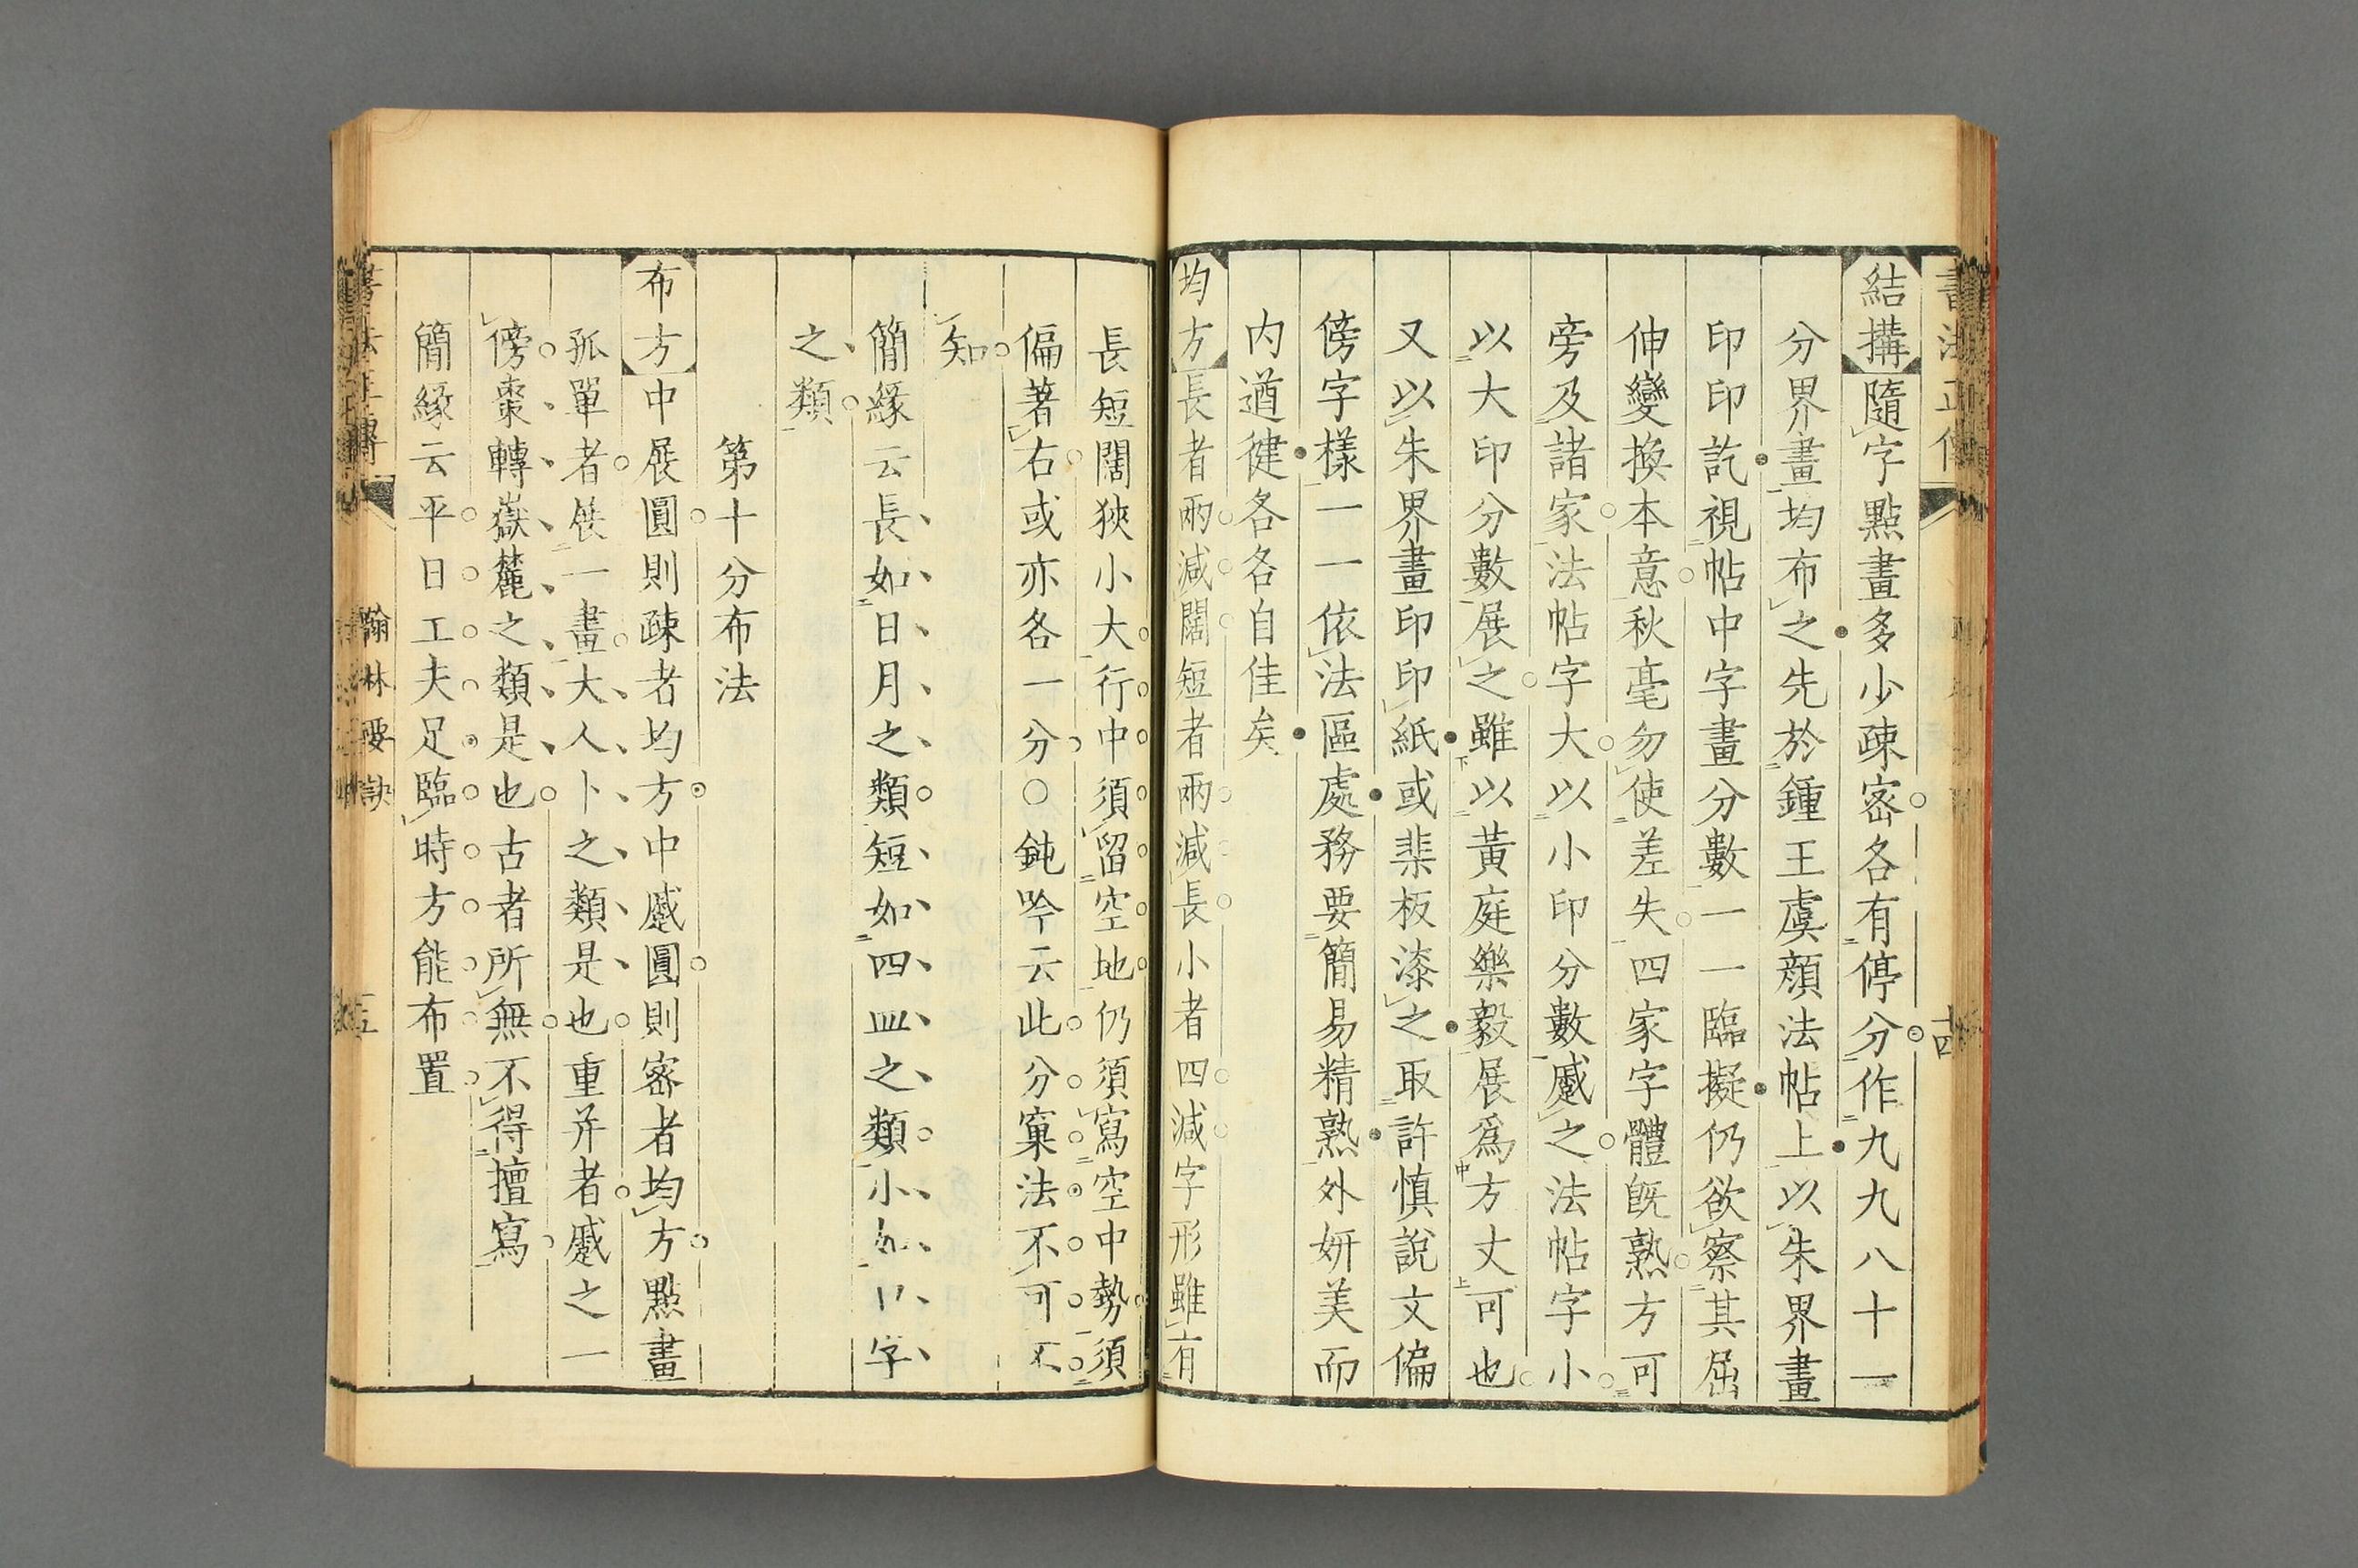 結搆隨字點畫多少疎密各有停分作九九八十一
分界畫均布之先於鍾王虞顏法帖上以朱界畫
印印訖視帖中字畫分數一一臨擬仍欲察其屈
伸變換本意秋毫勿使差失四家字體旣熟方可
旁及諸家法帖字大以小印分數蹙之法帖字小
以大印分數展之雖以黃庭樂毅展爲方丈可也
又以朱界畫印印紙或棐板漆之取許慎說文偏
傍字樣一一依法區處務要簡易精熟外妍美而
内遒健各各自佳矣
均方長者兩減闊短者兩減長小者四減字形雖有
長短闊狹小大行中須留空地仍須寫空中勢須
偏著右或亦各一分○鈍吟云此分窠法不可不
知
簡緣云長如日月之類短如四皿之類小如口字
之類
第十分布法
布方中展圓則疎者均方中蹙圓則密者均方點畫
孤單者展一畫大人卜之類是也重并者蹙之一
傍棗轉嶽麓之類是也古者所無不得擅寫
簡緣云平日工夫足臨時方能布置
翰林要訣